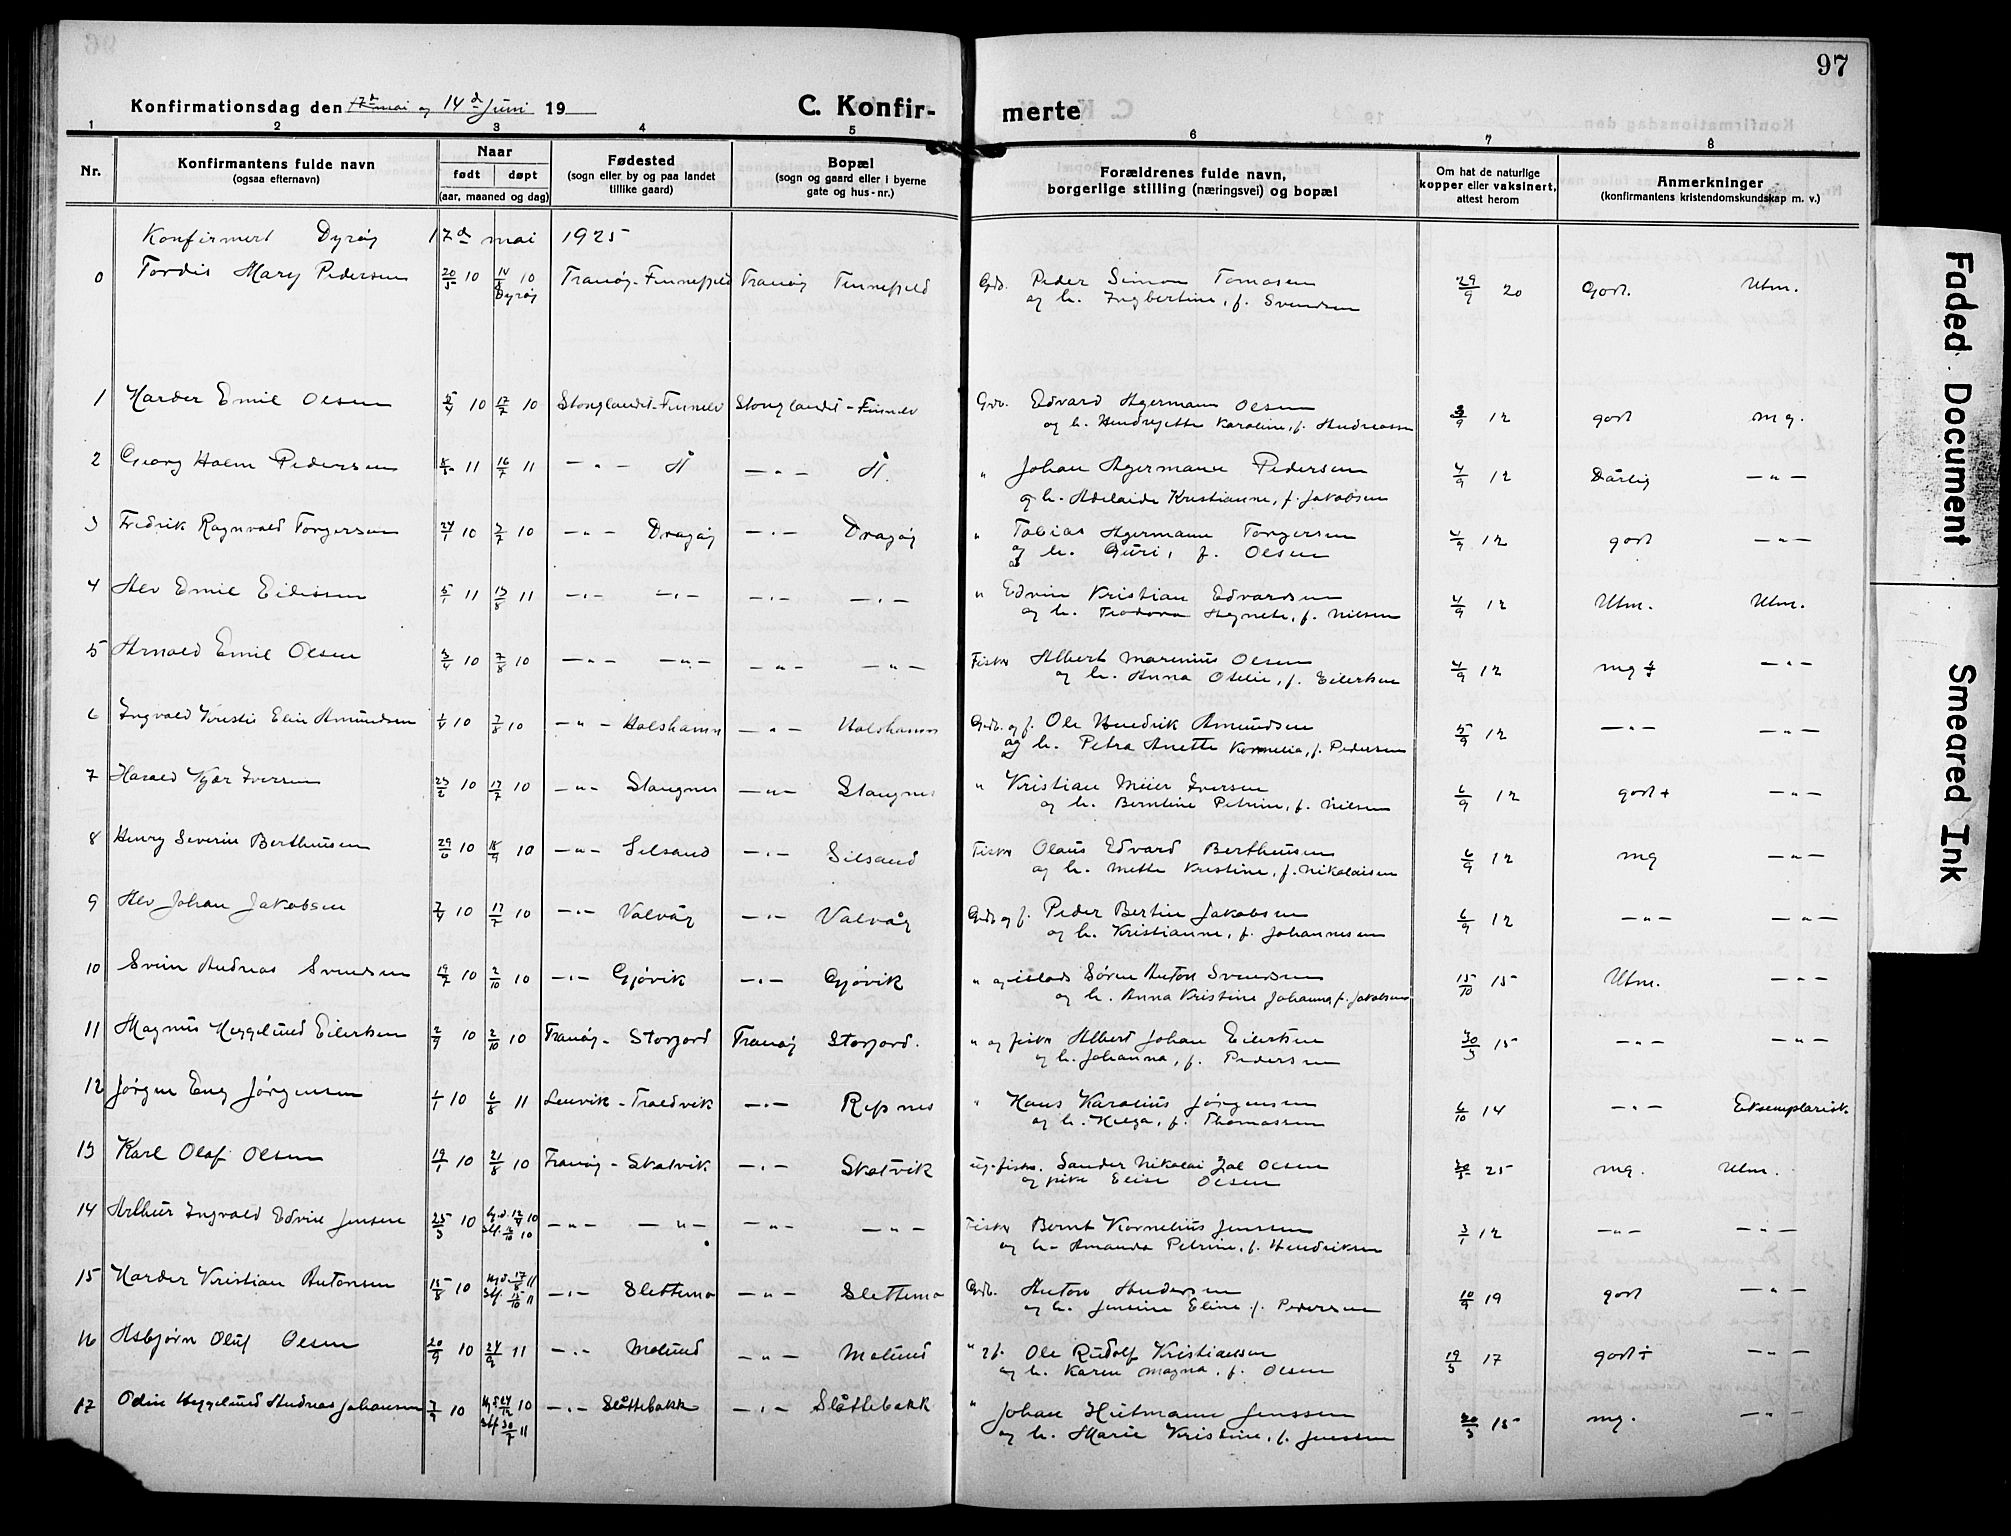 97
Konfirmationsdag den 17de mai og 14d Juni 19
C. Konfir-
merte
1 2 3 4 5 6 7 8
Nr.
Konfirmantens fulde navn
(ogsaa efternavn)
Naar
født døpt
(aar, maaned og dag)
Fødested
(sogn eller by og paa landet
tillike gaard)
Bopæl
(sogn og gaard eller i byerne
gate og hus-nr.)
Forældrenes fulde navn,
borgerlige stilling (næringsvei) og bopæl
Om hat de naturlige
kopper eller vaksinert,
attest herom
Anmerkninger
(konfirmantens kristendomskundskap m. v.)
Konfirmert Dyrøy 17d mai 1925
0 Tordis Mary Pedersen 20/5 10 14/8 10 Tranøy - Finnefjeld Tranøy Finnefjeld Gdb. Peder Simon Tomasen 29/9 20 Godt. Utm.
Dyrøy og h. Ingbertine, f. Svendsen
1 Harder Emil Olsen 5/4 10 17/7 10 Stonglandet - Finnelv Stonglandet - Finnelv Gdb. Edvard Hgermann Olsen 3/9 12 godt mg.
og h. Hendrejette Karoline, f. Andreassen
2 Georg Holm Pedersen 11 16/7 11 — " — Å — " — Å. " Johan Agermann Pedersen 4/9 12 Dårlig — " —
og h. Adelaide Kristianne, f. Jakobsen
3 Fredrik Ragnvald Torgersen 24/1 10 3/7 10 — " — Dragøy — " — Dragøy " Tobias Hgermann Torgersen 4/9 12 godt — " —
og h. Guri, f. Olsen
4 Alv Emil Eidissen 5/1 11 13/8 11 — " — — " — — " — — " — " Edvin Kristian Edvardsen 4/9 12 Utm. Utm.
og h. Teodora Agnete, f. Nilsen
5 Arnold Emil Olsen 3/4 10 7/8 10 — " — — " — — " — — " — Fisker Albert Marenius Olsen 4/9 12 mg ÷ — " —
og h. Anna Otelie, f. Eilertsen
6 Ingvald Kristie Elin Amundsen 1/4 10 7/8 10 — " — Holshamn — " — Holshamn Gdb. og f. Ole Hendrik Amundsen 5/9 12 — " — — " —
og h. Petra Anette Kornelia, f. Pedersen
7 Harald Kjær Iversen 23/2 10 17/7 10 — " — Stangnes — " — Stangnes " Kristian Meier Iversen 6/9 12 godt + — " —
og h. Berntine Petrine, f. Nilsen
8 Henry Severin Bertheusen 29/6 10 18/9 10 — " — Selsand — " — Silsand Fisker Olaus Edvard Bertheusen 6/9 12 mg — " —
og h. Mette Kristine, f. Nikolaisen
9 Alv Johan Jakobsen 7/4 10 17/7 10 — " — Valvåg — " — Valvåg Gdb og f. Peder Bertin Jakobsen 6/9 12 — " — — " —
og h. Kristianne, f. Johannesen
10 Svein Andreas Svendsen 19/7 10 2/10 10 — " — Gjøvik — " — Gjøvik " Søren Anton Svendsen 15/10 15 Utm. — " —
og h. Anna Kristine Johanna f. Jakobsen
11 Magnus Heggelund Eilertsen 2/9 10 2/10 10 Tranøy - Storjord Tranøy Storjord. " og fisker Albert Johan Eilertsen 30/3 15 — " — — " —
og h. Johanna, f. Pedersen
12 Jørgen Eng Jørgensen 1/1 10 6/8 11 Lenvik - Traldvik — " — Refsnes " Hans Karolius Jørgensen 6/10 14 — " — Eksemplarisk
og h. Helga, f. Thomassen
13 Karl Olaf Olsen 19/1 10 21/8 10 Tranøy - Skatvik — " — Skatvik Sander Nikolai Olsen 30/3 25 mg. Utm.
og pike Elise Olsen
14 Arthur Ingvald Edvin Jensen 25/3 10 hj.d. 12/4 10 — " — — " — — " — — " — Fisker Bernt Kornelius Jenssen 3/1 12 — " — — " —
stf. 2/10 10 og h. Amanda Petrine, f. Hendriksen
15 Harder Kristian Antonsen 15/8 10 hj.d. 17/8 11 — " — Slettemo — " — Slettemo Gdb. Anton Andersen 10/9 19 godt — " —
stf. 15/10 11 og h. Jensine Eline f. Pedersen
16 Asbjørn Oluf Olsen 20/9 10 24/9 11 — " — Molund — " — Molund " Ole Rudolf Kristiansen 19/3 17 godt ÷ — " —
og h. Karen Magna, f. Olsen
17 Odin Heggelund Andreas Johansen 7/9 10 24/12 10 — " — Slåttebakk — " — Slåttebakk " Johan Hartmann Jenssen 30/3 15 mg. — " —
stf 30/7 11 og h. Marie Kristine, f. Jenssen
Faded Document
Smeared Ink